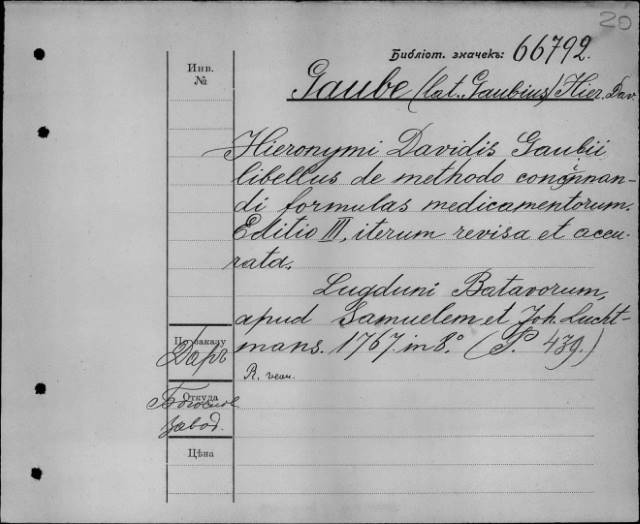 20
Библіот. значекъ: 66792.
Инв. №
Gaube (lat. Gaubius) Hier. Dav.
Hieronymi Davidis Gaubii
libellus de methodo concinnan-
di formulas medicamentorum.
Editio III, iterum revisa et accu-
rata.
Lugduni Batavorum,
apud Samuelem et Joh. Lucht-
mans. 1767. in 8.° (S. 439.)
По заказу
Даръ
R. veau.
Откуда
завод.
Цѣна